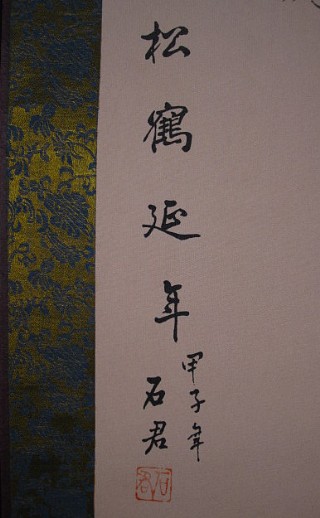 松鶴延年
甲子年
石君
石君